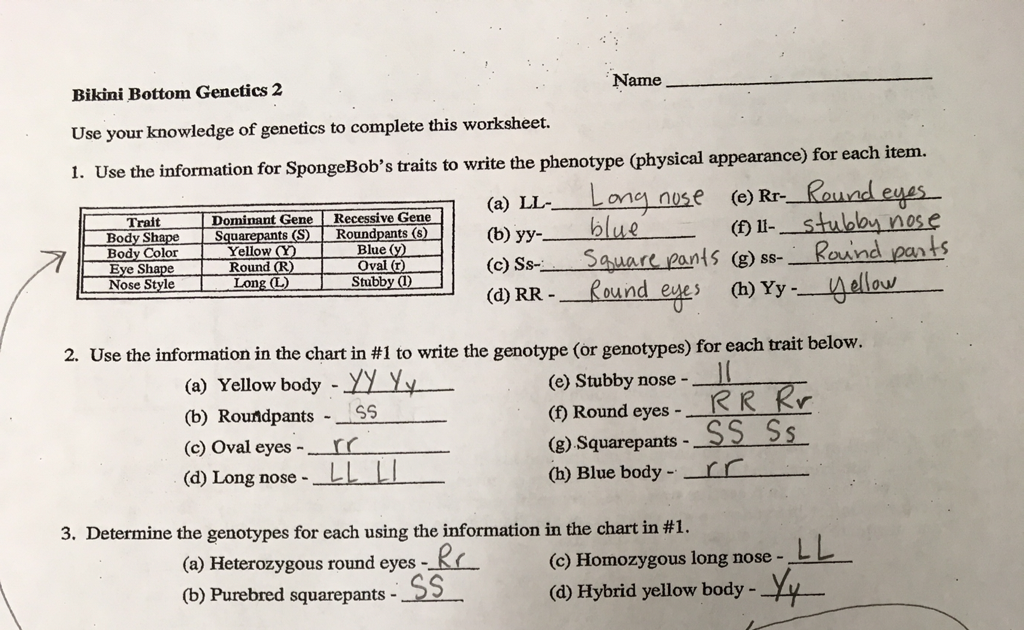 Name
Bikini Bottom Genetics 2
Use your knowledge of genetics to complete this worksheet.
1. Use the information for SpongeBob's traits to write the phenotype (physical appearance) for each item.
Trait Dominant Gene Recessive Gene
Body Shape Squarepants (S) Roundpants (s)
Body Color Yellow (Y) Blue (y)
Eye Shape Round (R) Oval (r)
Nose Style Long (L) Stubby (l)
(a) LL- Long nose (e) Rr- Round eyes
(b) yy- blue (f) ll- stubby nose
(c) Ss- Square pants (g) ss- Round pants
(d) RR - Round eyes (h) Yy - yellow
2. Use the information in the chart in #1 to write the genotype (or genotypes) for each trait below.
(a) Yellow body - YY Yy (e) Stubby nose - ll
(b) Roundpants - ss (f) Round eyes - RR Rr
(c) Oval eyes - rr (g) Squarepants - SS Ss
(d) Long nose - LL Ll (h) Blue body - rr
3. Determine the genotypes for each using the information in the chart in #1.
(a) Heterozygous round eyes - Rr (c) Homozygous long nose - LL
(b) Purebred squarepants - SS (d) Hybrid yellow body - Yy